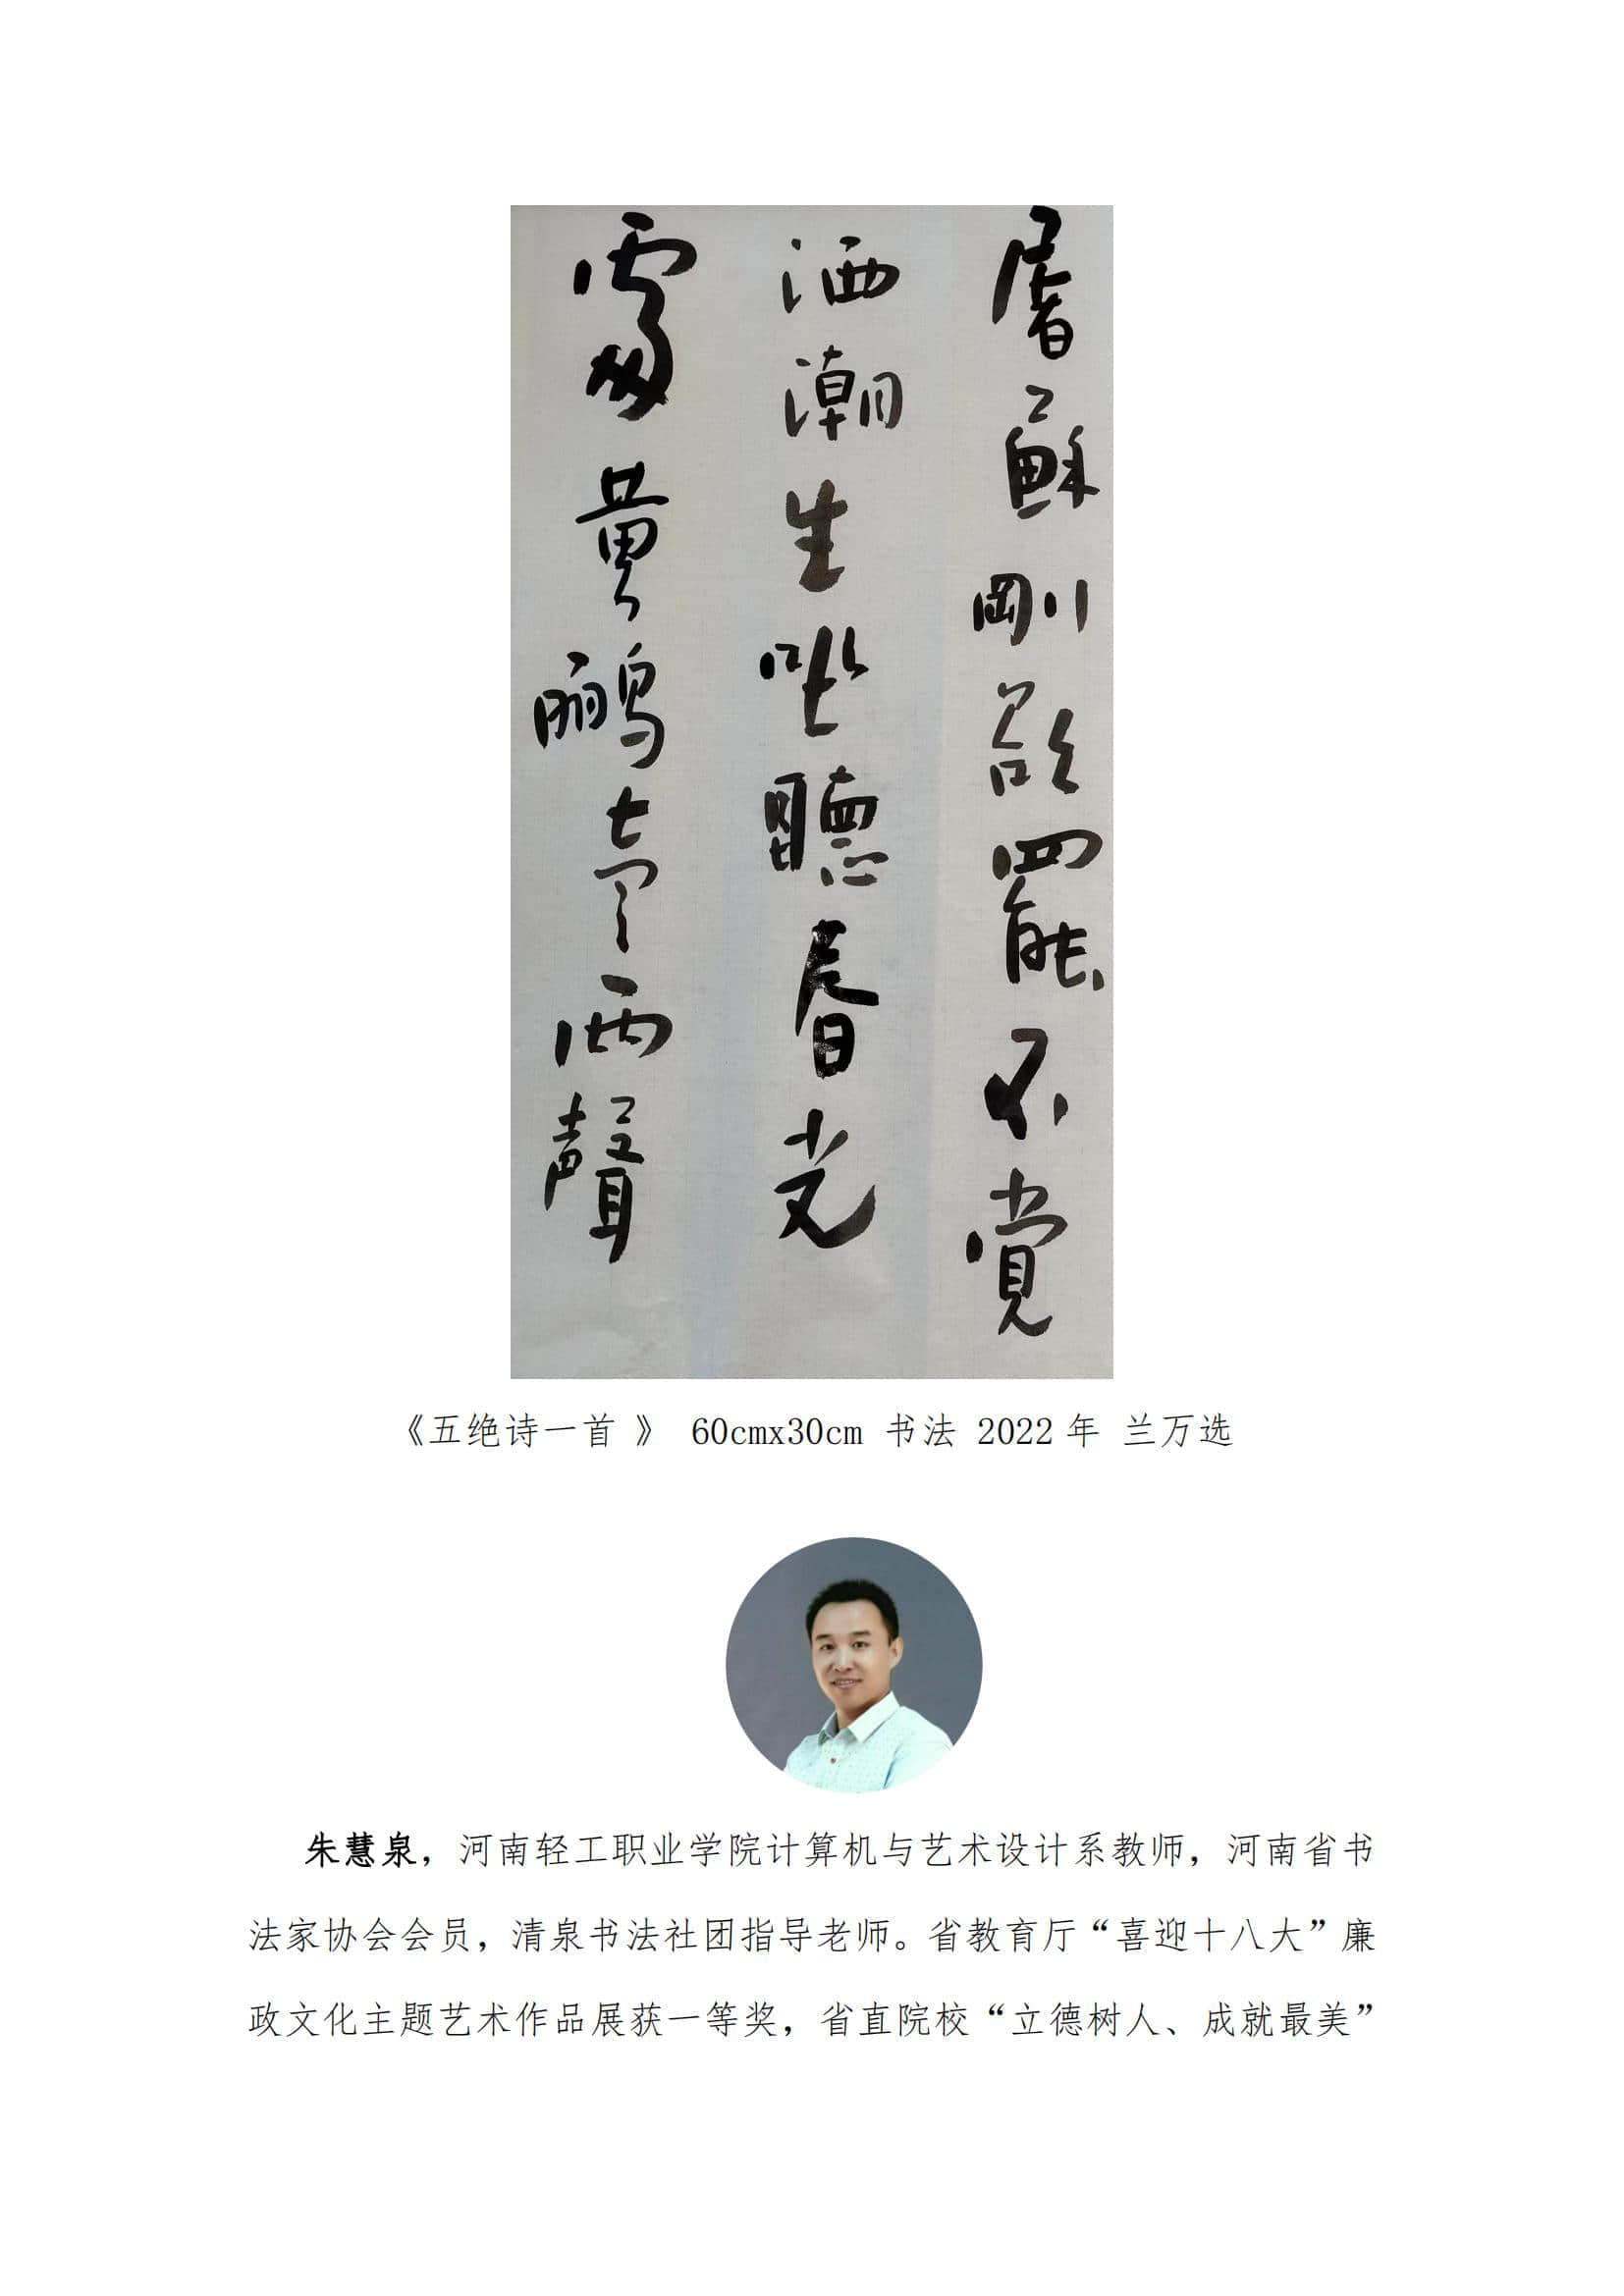 屠蘇剛欲罷不覺
酒潮生坐聽春光
處黄鸝壹兩聲
《五绝诗一首 》 60cmx30cm 书法 2022年 兰万选
朱慧泉，河南轻工职业学院计算机与艺术设计系教师，河南省书
法家协会会员，清泉书法社团指导老师。省教育厅“喜迎十八大”廉
政文化主题艺术作品展获一等奖，省直院校“立德树人、成就最美”